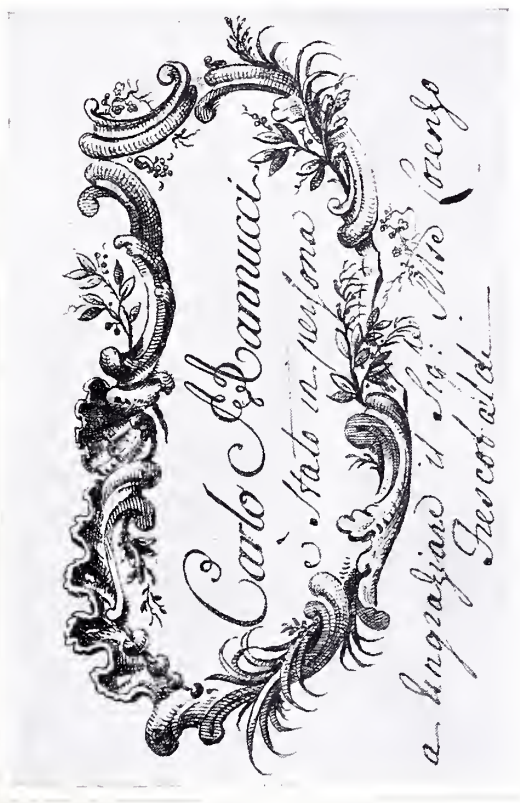 Carlo Mannucci
è stato in persona
a Ringraziare il Sig: Mse Lorenzo
Frescobaldi